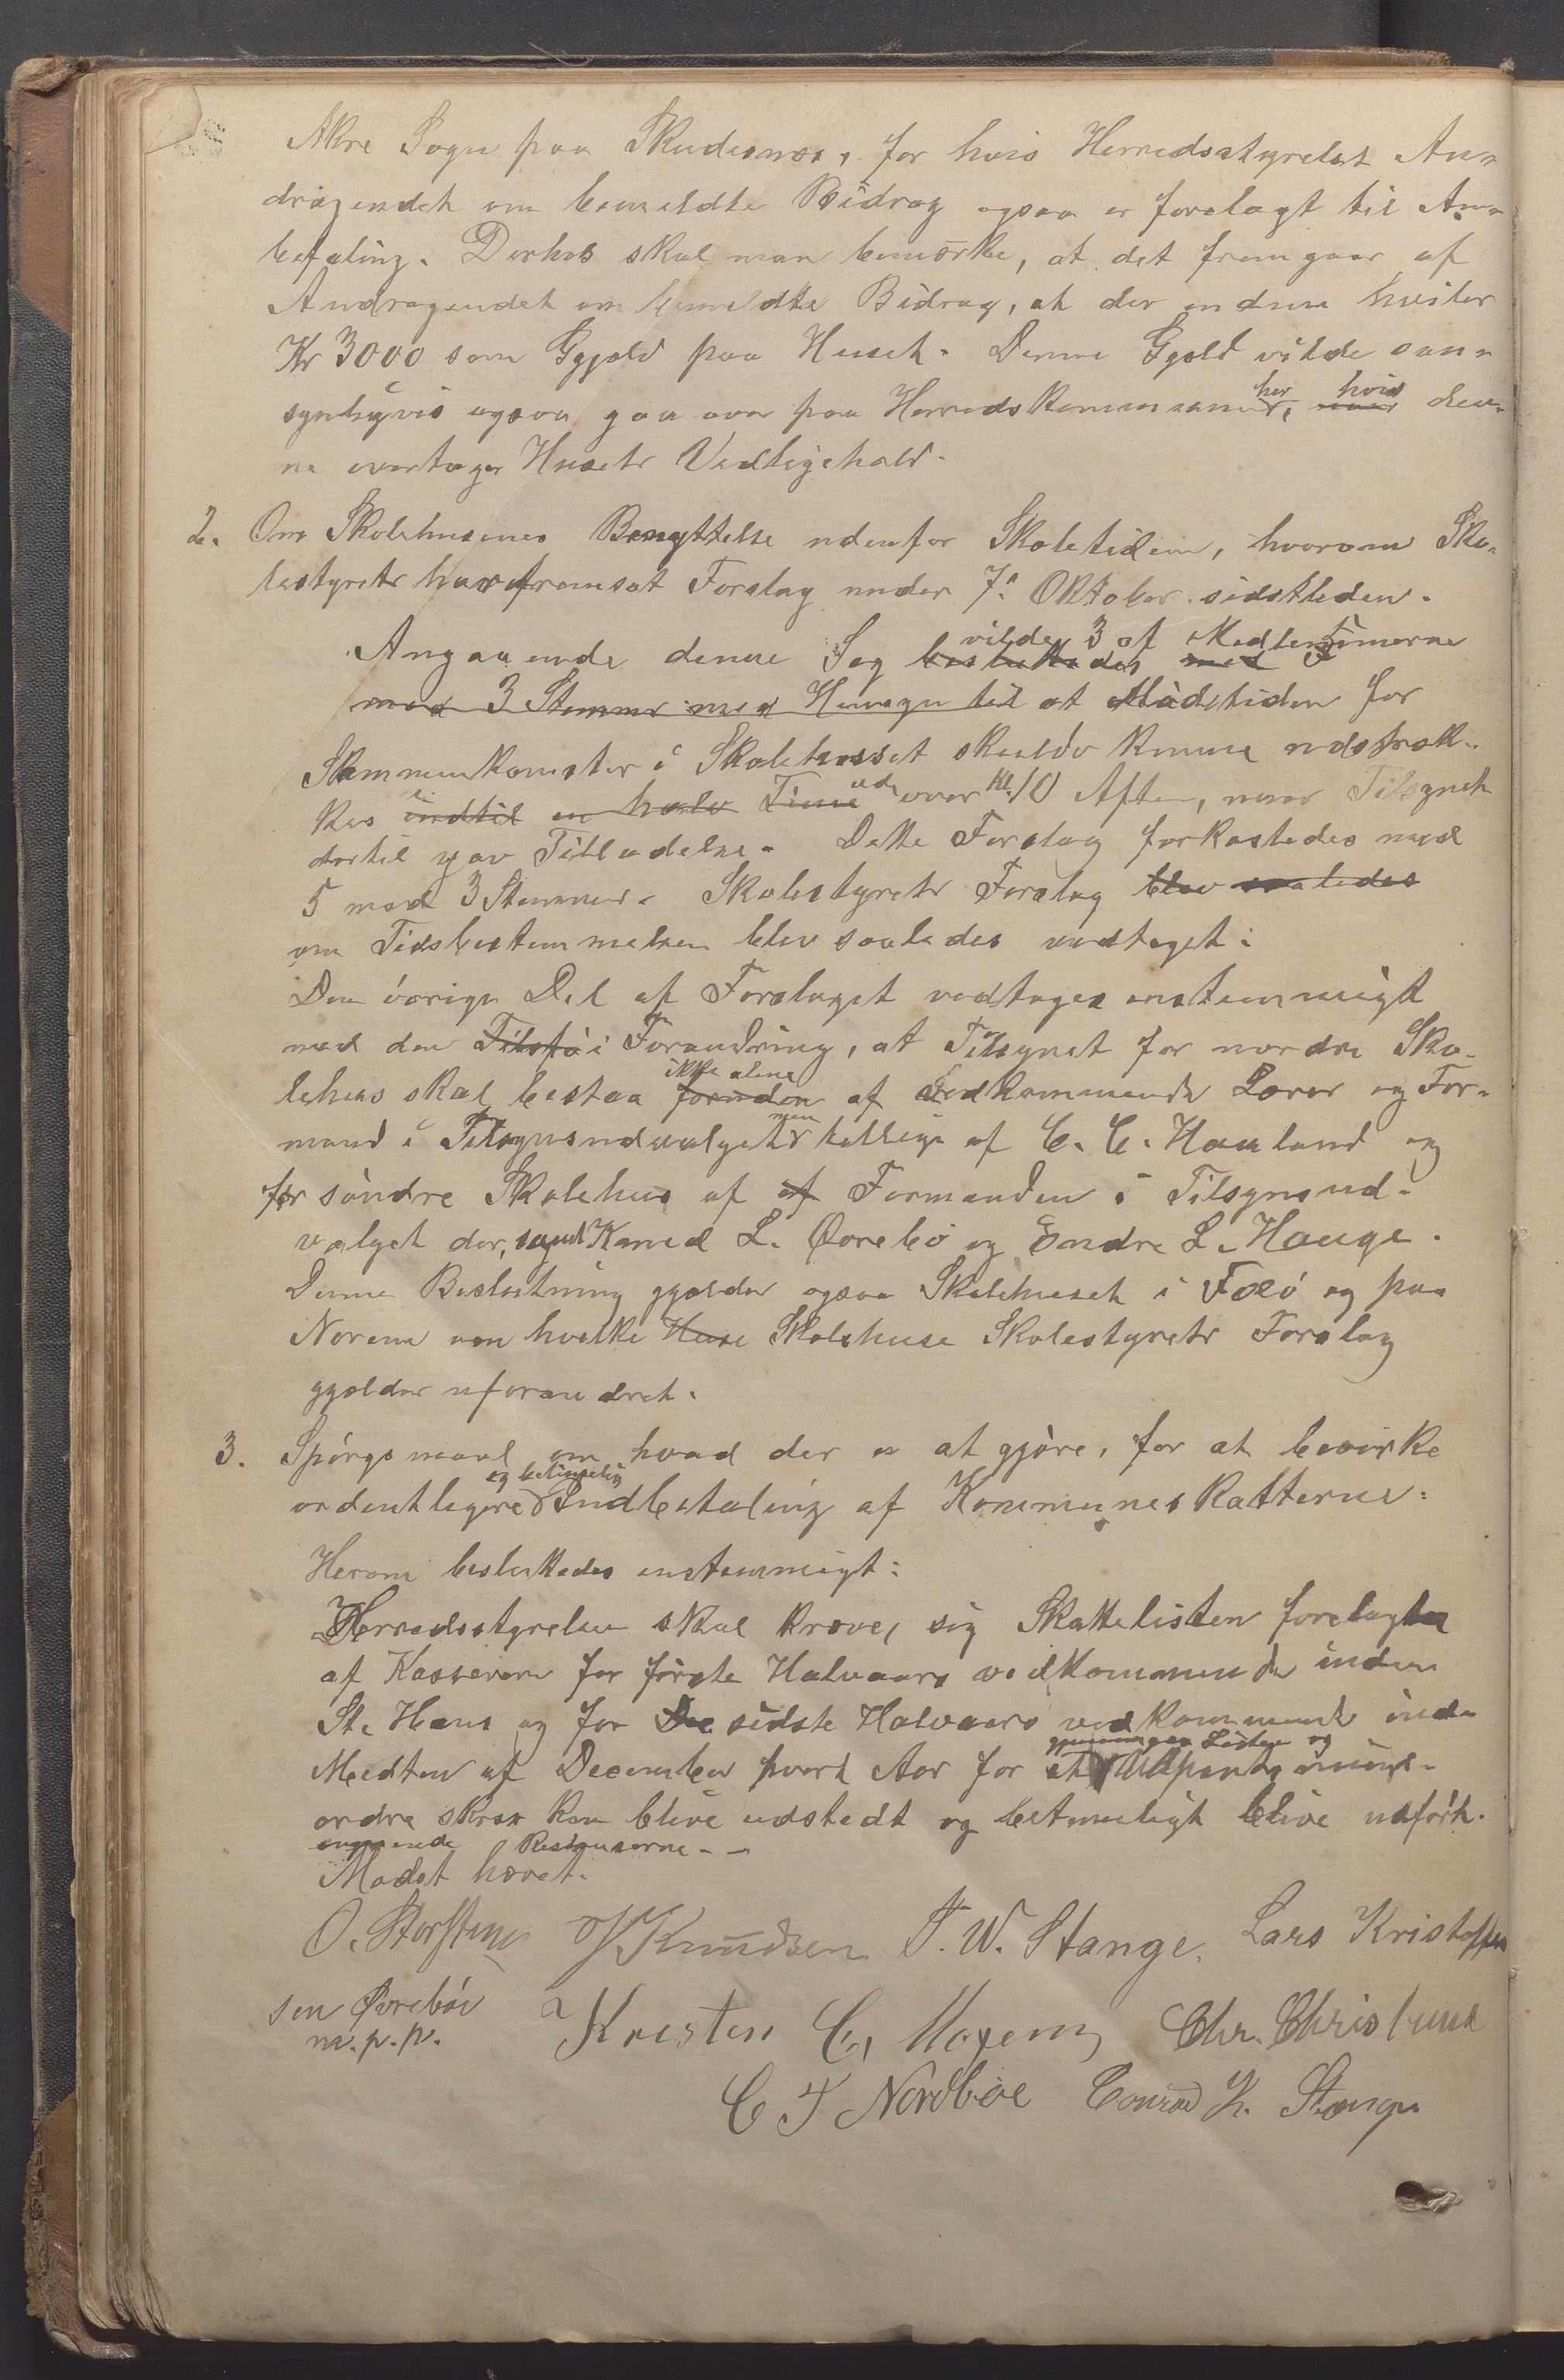 Akre Sogn paa Skudesnæs, for hvis Herredsstyrelse An-
dragendet om bemeldte Bidrag ogsaa er forelagt til An-
befaling. Derhos skal man bemærke, at det fremgaar af
Andragendet om bemeldte Bidrag, at der endnu hviler
Kr 3000 som Gjæld paa Huset. Denne Gjæld vilde san-
synligvis ogsaa gaa over paa Herredskommunen her, hvis den-
ne overtager Husets Vedligehold.
2. Om Skolehusenes Benyttelse udenfor Skoletiden, hvorom Sko-
lestyret har fremsat Forslag under 7de Oktober sidstleden.
Angaaende denne Sag besluttedes med vilde 3 af Medlemmerne
med 3 Stemmer med Hensyn til at Mödetiden for
Sammenkomster i Skolehuset skulde kunne udstræk-
kes indtil en halv Time ud over Kl. 10 Aften, naar Tilsynet
dertil gav Tilladelse. Dette Forslag forkastedes med
5 mod 3 Stemmer. Skolestyrets Forslag blev saaledes
om Tidsbestemmelsen blev saaledes vedtaget.
Den övrige Del af Forslaget vedtages enstemmigt
med den Tilföi Forandring, at Tilsynet for nordre Sko-
lehus skal bestaa foruden ikke alene af vedkommende Lærer og For-
mand i Tilsynsudvalget men tillige af C. C. Hauland og
for söndre Skolehus af af Formanden i Tilsynsud-
valget der, samt Kanud L. Øvrebö og Endre L. Hauge.
Denne Beslutning gjælder ogsaa Skolehuset i Fæö og paa
Norem om hvilke Huse Skolehuse Skolestyrets Forslag
gjælder uforandret.
3. Spörgsmaal om hvad der er at gjöre, for at bevirke
ordentligere og betimelig Indbetaling af Kommuneskatterne.
Herom besluttedes enstemmigt:
Herredsstyrelsen skal kræve sig Skattelisten forelagt
af Kassereren for förste Halvaars vedkommende inden
St. Hans og for De sidste Halvaars vedkommende inden
Medten af December hvert Aar for at gjennemgaa Listen og Udpantnings-
ordre skal kan blive udstedt og betimeligt blive udfört.
angaaende Restanserne.
Mödet hævet.
O. Storstein K. Knudsen T. W. Stange. Lars Kristoffer
sen Øvreböe Kristen C. Mogeng Chr. Christense
m. p. p.
C T Nordböe Conrad H. Stange